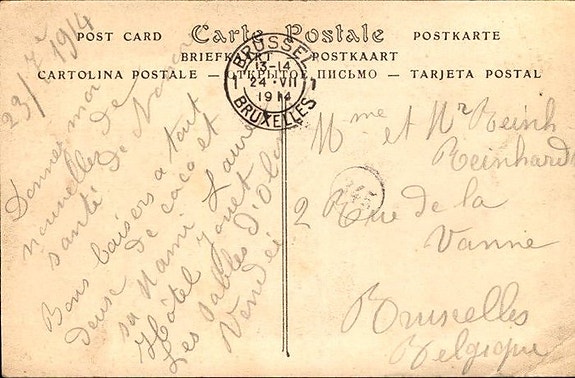 POST CARD Carte Postale POSTKARTE
BRIEFKAART POSTKAART
CARTOLINA POSTALE – ОТКРЫТОЕ ПИСЬМО – TARJETA POSTAL
BRUSSEL
13-14
24 · VII
1914
BRUXELLES
23/7 1914
Donnez moi
nouvelles de
santé de
Bons baisers a tout
deux de coco et
sa Mami Laure
Hôtel
Les Sables d'Olonne
Vendée
Mme et Mr Reinh
Reinhard
2 Rue de la
Vanne
Bruxelles
Belgique